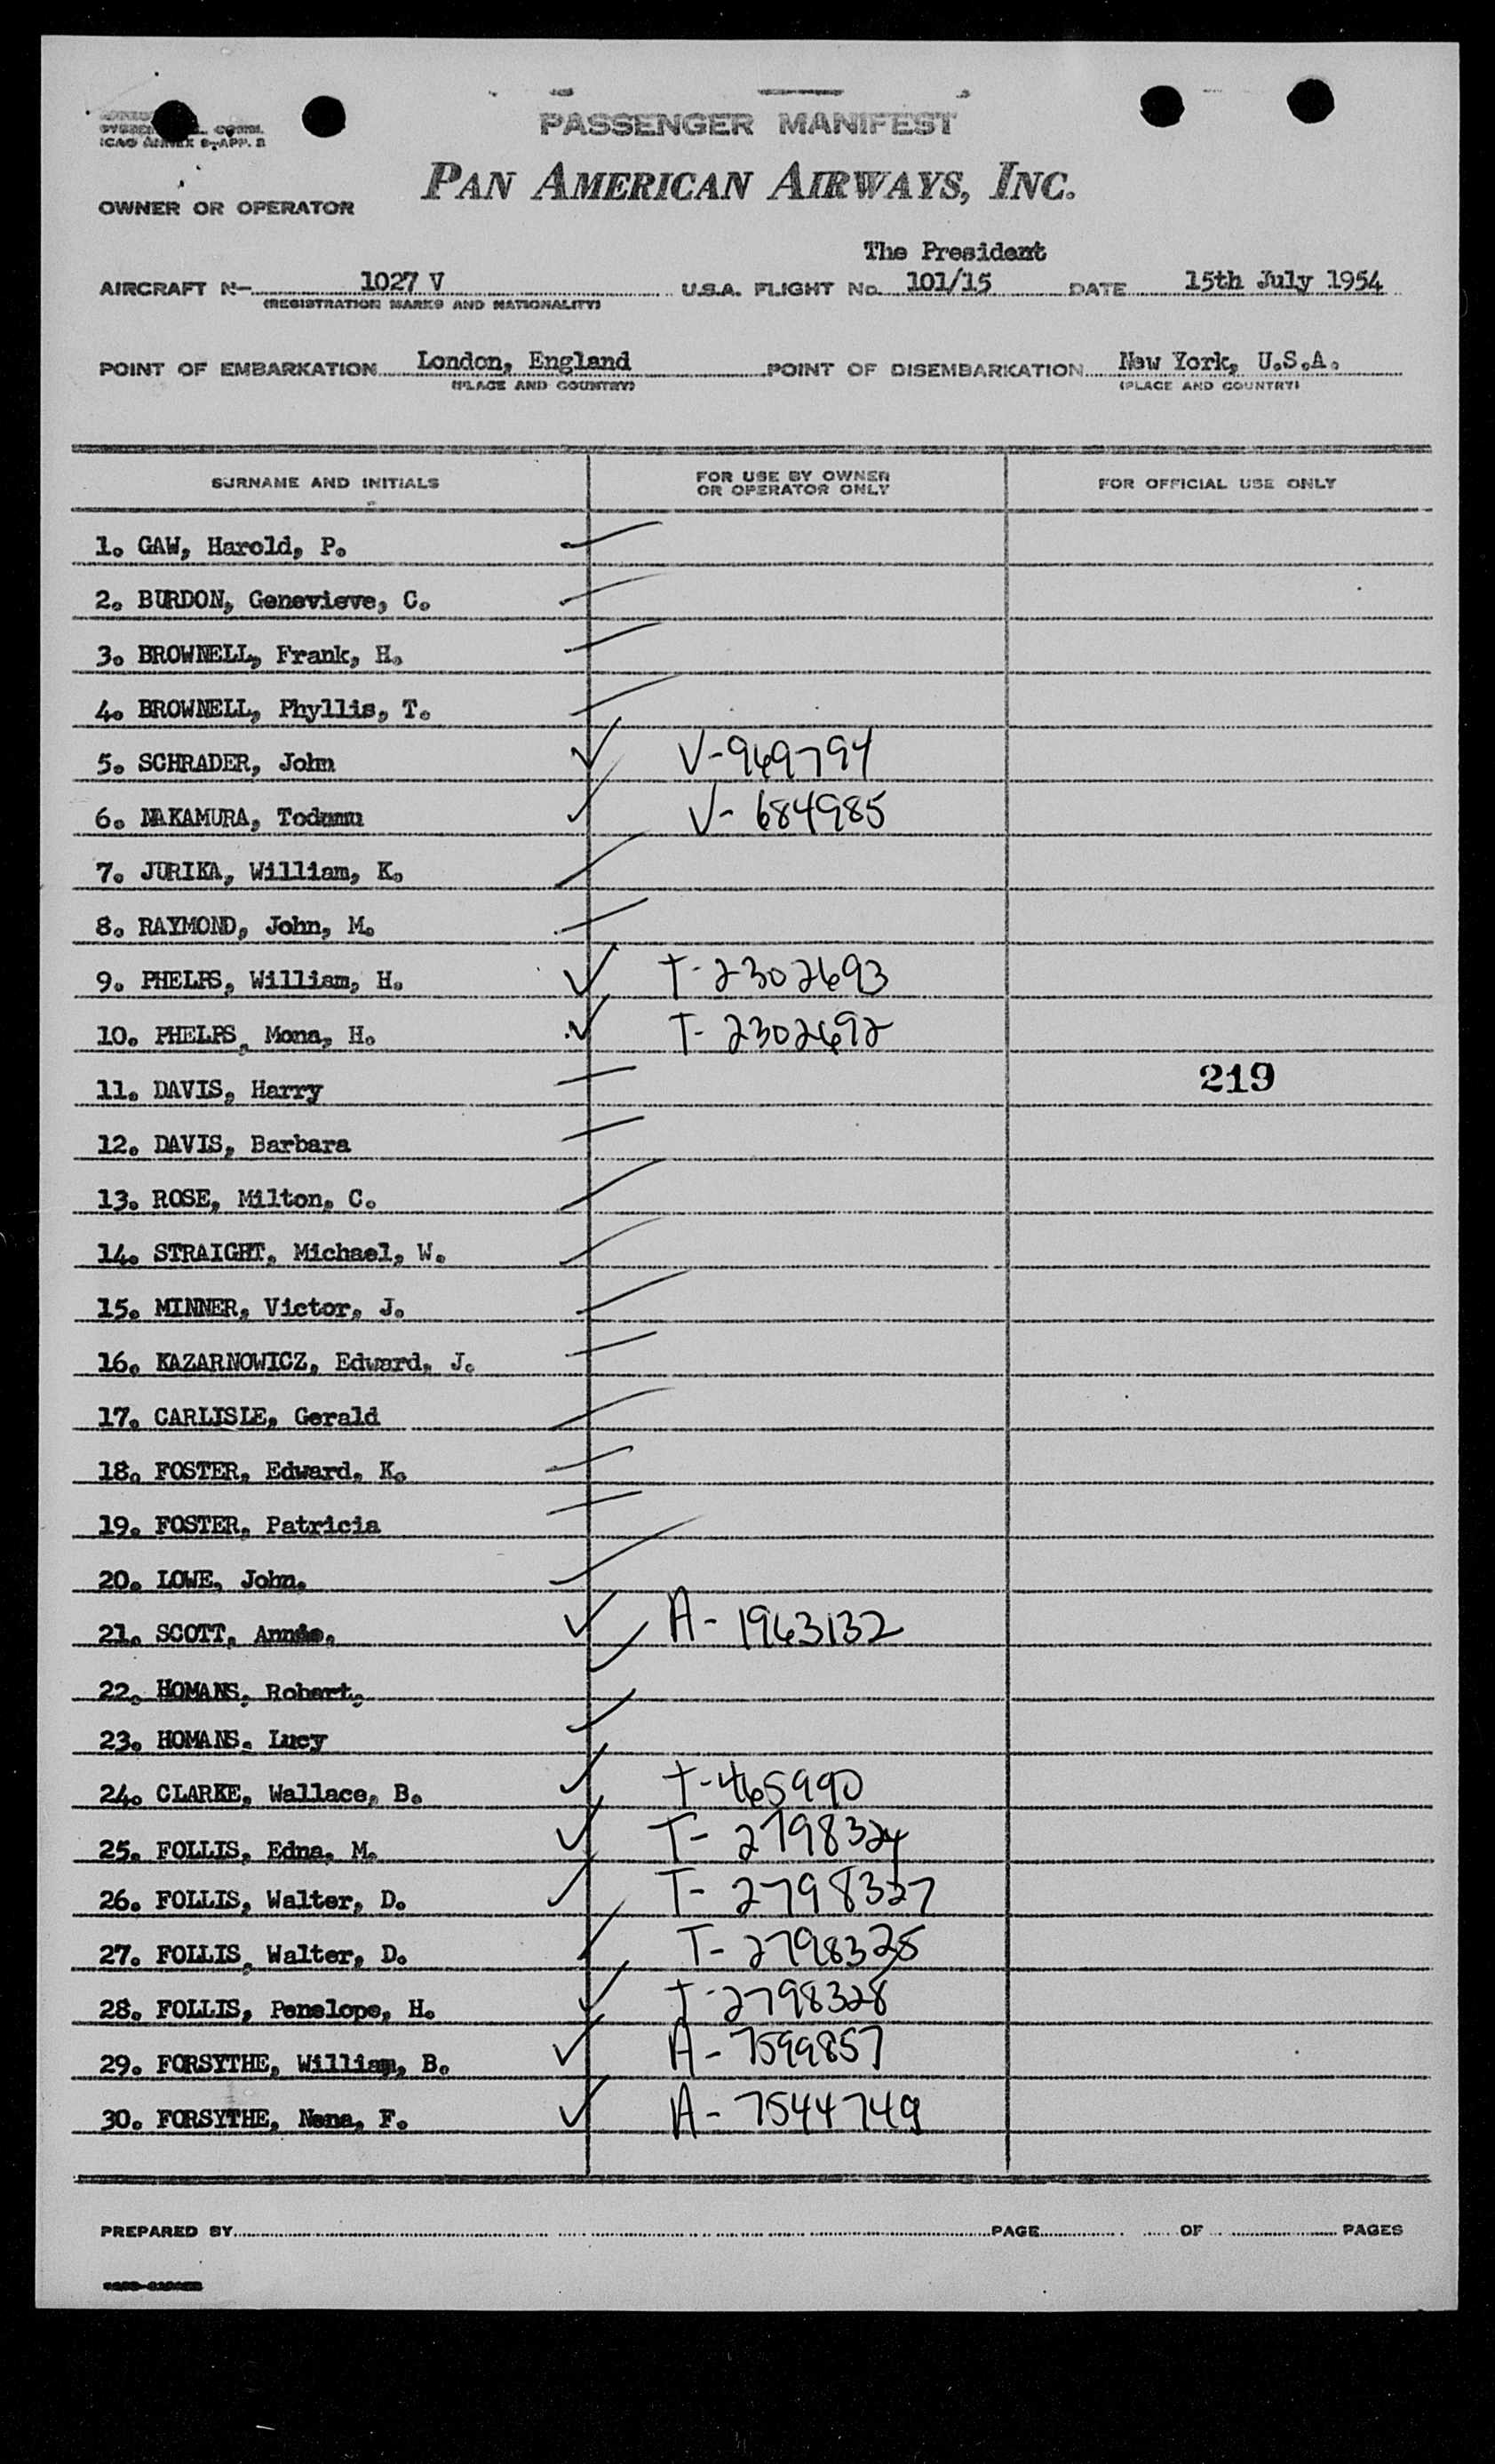 PASSENGER MANIFEST
ICAO ANNEX 9-APP. 2
PAN AMERICAN AIRWAYS, INC.
OWNER OR OPERATOR
The President
AIRCRAFT N- 1027 V U.S.A. FLIGHT No. 101/15 DATE 15th July 1954
(REGISTRATION MARKS AND NATIONALITY)
POINT OF EMBARKATION London, England POINT OF DISEMBARKATION New York, U.S.A.
(PLACE AND COUNTRY) (PLACE AND COUNTRY)
SURNAME AND INITIALS FOR USE BY OWNER OR OPERATOR ONLY FOR OFFICIAL USE ONLY
1. GAW, Harold, P.
2. BURDON, Genevieve, C.
3. BROWNELL, Frank, H.
4. BROWNELL, Phyllis, T.
5. SCHRADER, John V-969794
6. NAKAMURA, V-684985
7. JURIKA, William, K.
8. RAYMOND, John, M.
9. PHELPS, William, H. T-2302693
10. PHELPS, Mona, H. T-2302692
11. DAVIS, Harry 219
12. DAVIS, Barbara
13. ROSE, Milton, C.
14. STRAIGHT, Michael, W.
15. MINNER, Victor, J.
16. KAZARNOWICZ, Edward, J.
17. CARLISLE, Gerald
18. FOSTER, Edward, K.
19. FOSTER, Patricia
20. LOWE, John.
21. SCOTT, Annie. A-1963132
22. HOMANS, Robert,
23. HOMANS, Lucy
24. CLARKE, Wallace, B. T-465990
25. FOLLIS, Edna, M. T-2798324
26. FOLLIS, Walter, D. T-2798327
27. FOLLIS, Walter, D. T-2798325
28. FOLLIS, Penelope, H. T-2798328
29. FORSYTHE, William, B. A-7599857
30. FORSYTHE, Nena, F. A-7544749
PREPARED BY PAGE OF PAGES